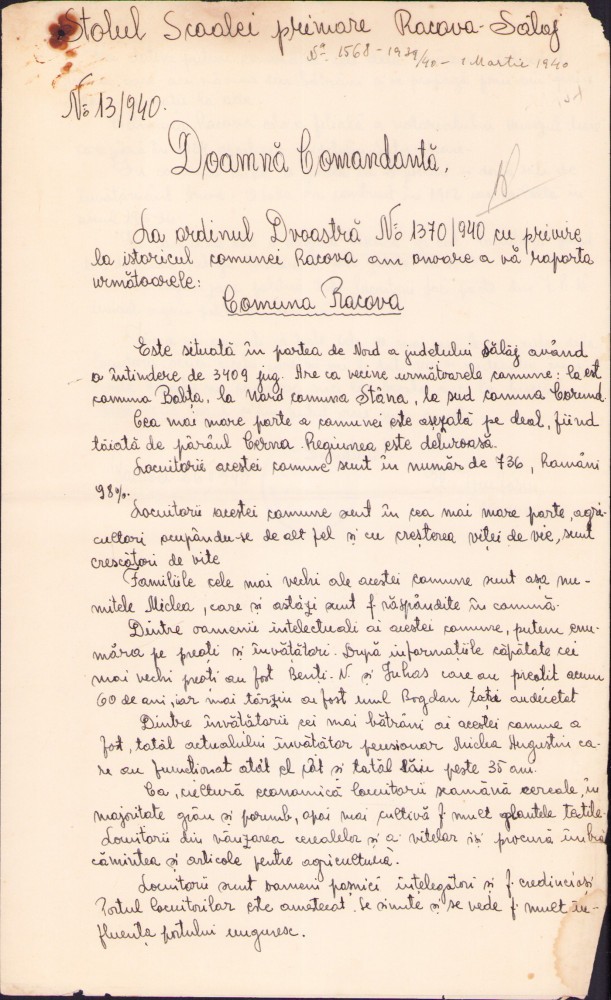 Stolul Scoalei primare Racova-Sălaj
No 1568-1939/940 - 1 Martie 1940
No 13/940.
Doamnă Comandantă,
La ordinul Dvoastră No 1370/940 cu privire
la istoricul comunei Racova am onoare a vă raporta
următoarele:
Comuna Racova
Este situată în partea de Nord a județului Sălaj având
o întindere de 3409 jug. Are ca vecine următoarele comune: la est
comuna Babța, la Nord comuna Stâna, la sud comuna Corund.
Cea mai mare parte a comunei este așezată pe deal, fiind
tăiată de pârâul Cerna. Regiunea este deluroasă.
Locuitorii acestei comune sunt în număr de 736, Români
98%.
Locuitorii acestei comune sunt în cea mai mare parte, agri-
cultori ocupându-se de alt fel și cu creșterea viței de vie, sunt
crescători de vite
Familiile cele mai vechi ale acestei comune sunt așa nu-
mitele Miclea, care și astăzi sunt f. răspândite în comună.
Dintre oamenii intelectuali ai acestei comune, putem enu-
măra pe preoți și învățători. După informațiile căpătate cei
mai vechi preoți au fost Beniți-N. și Juhas care au preoțit acum
60 de ani, iar mai târziu au fost unul Bogdan tatăl
Dintre învățătorii cei mai bătrâni ai acestei comune a
fost, tatăl actualului învățător pensionar Miclea Augustin ca-
re au funcționat atât el cât și tatăl său peste 35 ani.
Ca, cultură economică locuitorii seamănă cereale, în
majoritate grâu și porumb, apoi mai cultivă f. mult plantele textile.
Locuitorii din vânzarea cerealelor și a vitelor iși procură îmbră
cămintea și articole pentru agricultură.
Locuitorii sunt oameni pașnici înțelegători și f. credincioși
Portul locuitorilor este amestecat. Se simte și se vede f. mult in-
fluența portului unguresc.